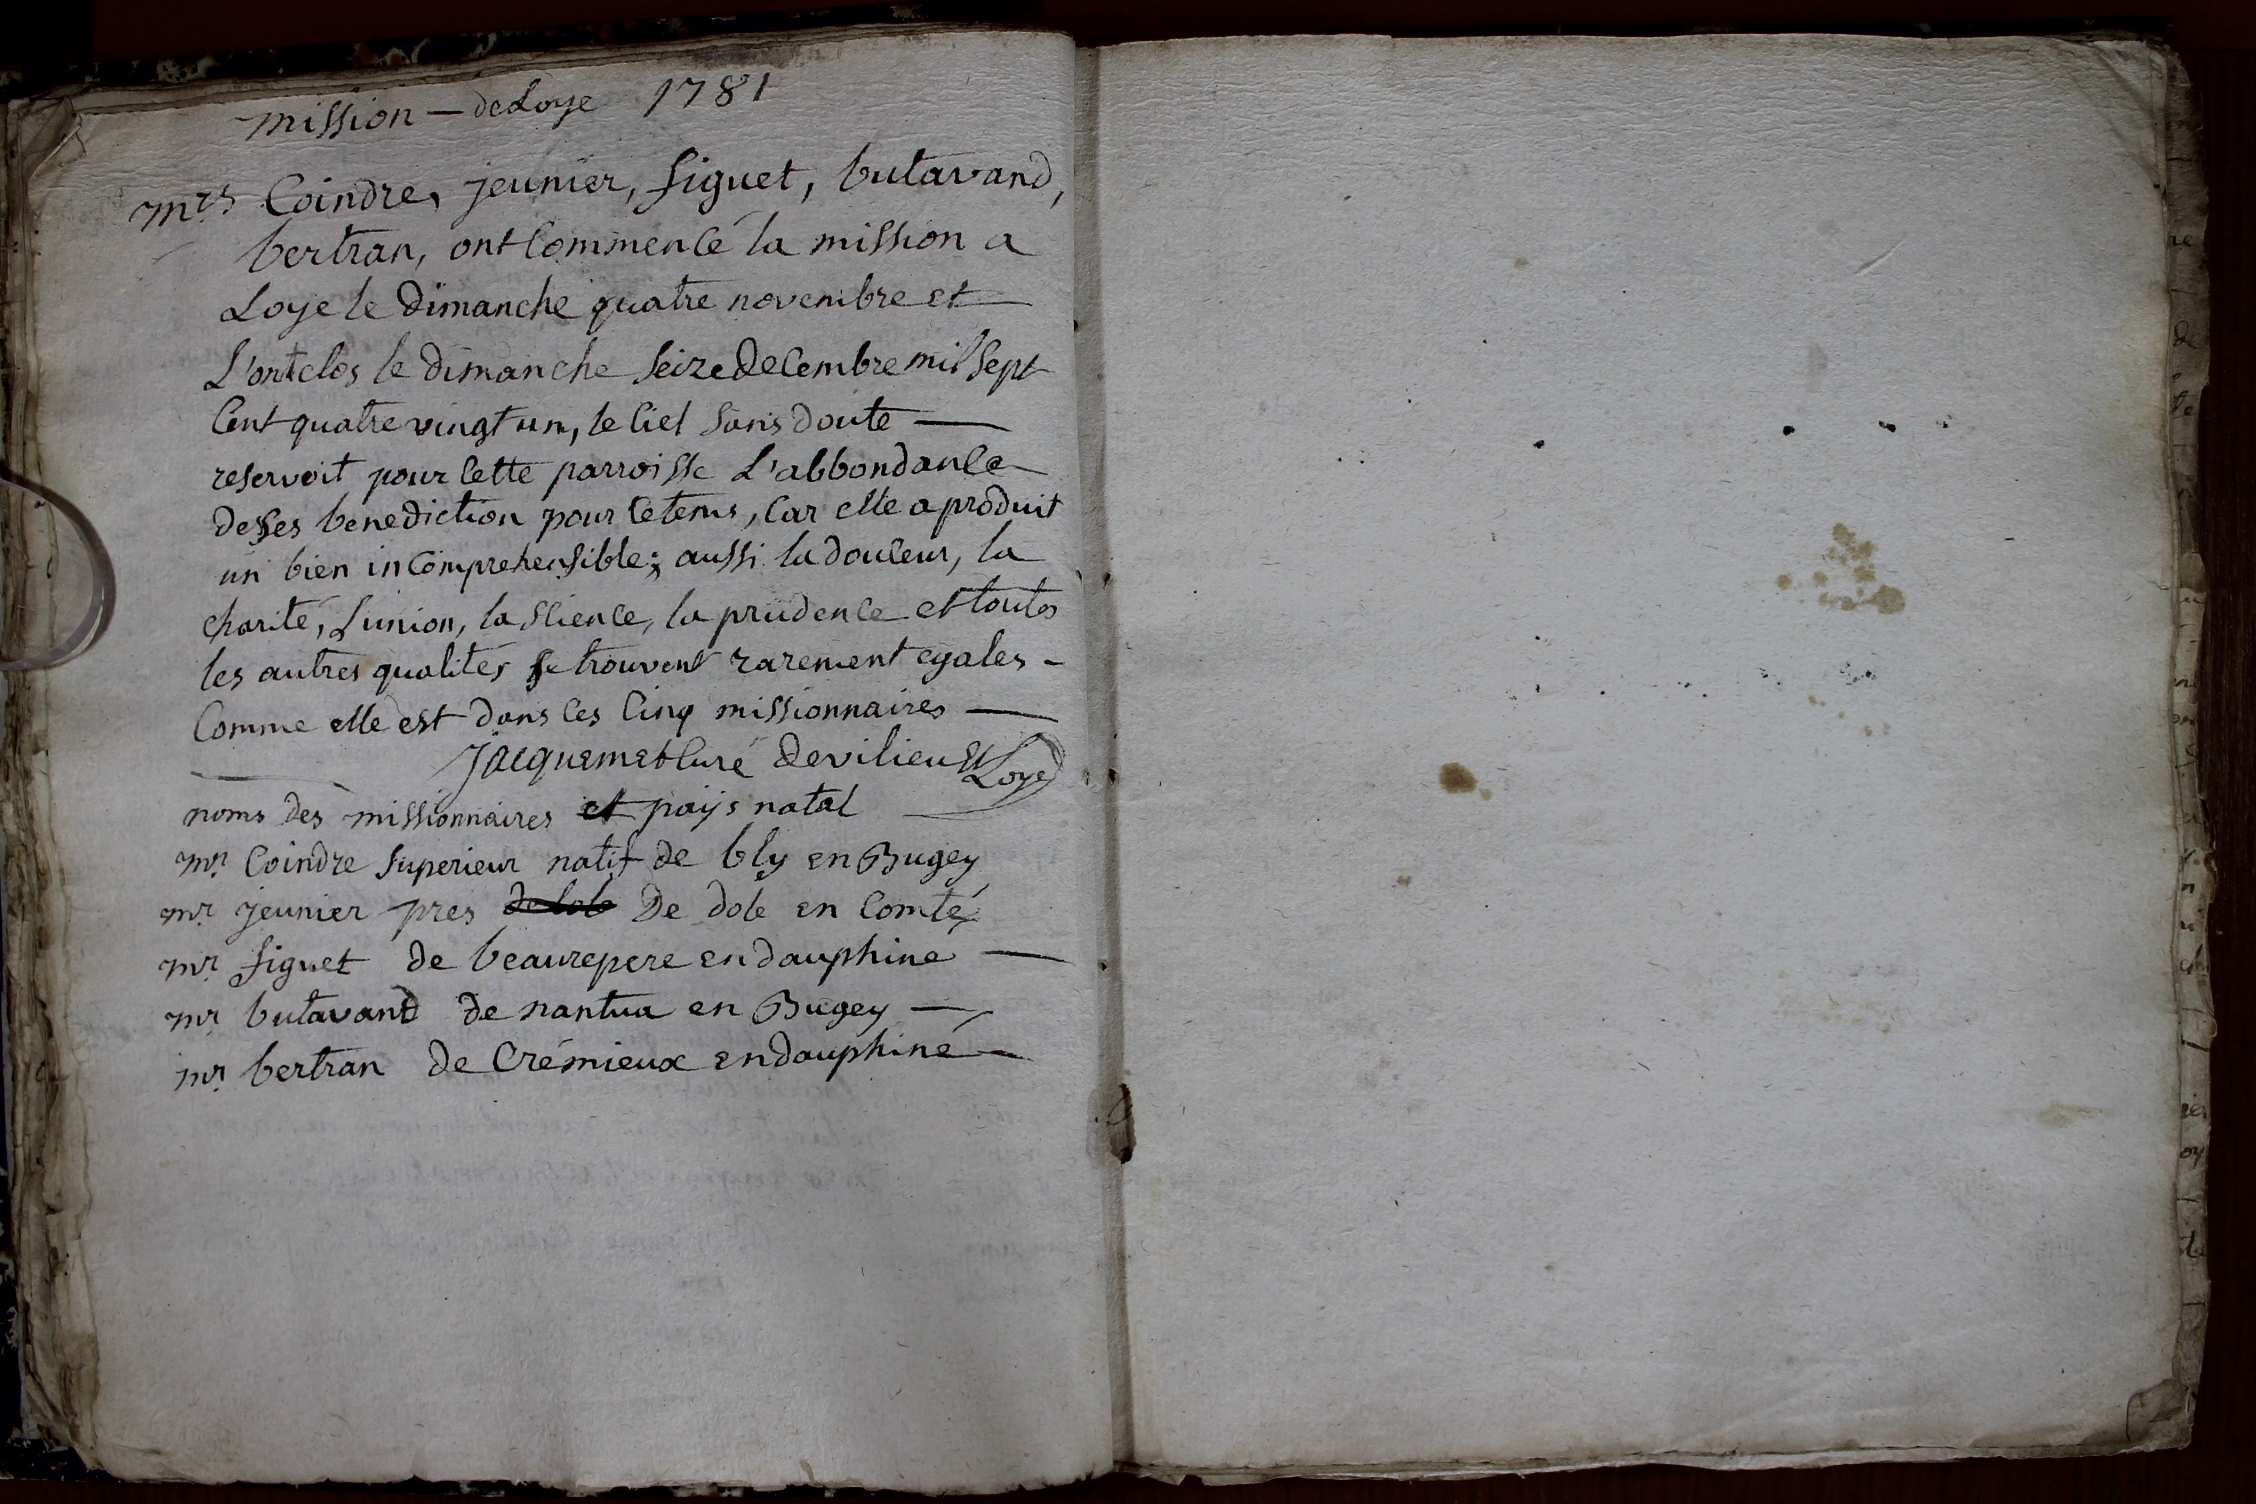 mission — de Loye 1781
mrs Coindre, jeunier, figuet, butavand,
bertran, ont Commencé la mission a
Loye le dimanche quatre novembre et
L'ont clos le dimanche seize decembre mil sept
Cent quatre vingt un, le Ciel sans doute —
reservoit pour Cette parroisse L'abbondance
de ses benediction pour Ce tems, Car elle a produit
un bien inComprehensible; aussi la douceur, la
charité, L'union, la science, la prudence et toutes
les autres qualités se trouvent rarement egales -
Comme elle est dans Ces Cinq missionnaires —
Jacquemet Curé de vilieu et Loye
noms des missionnaires et païs natal
mr Coindre superieur natif de bly en Bugey
mr jeunier pres de dole en Comté
mr figuet de beaurepere en dauphiné —
mr butavand de nantua en Bugey —
mr bertran de Crémieux en dauphiné —